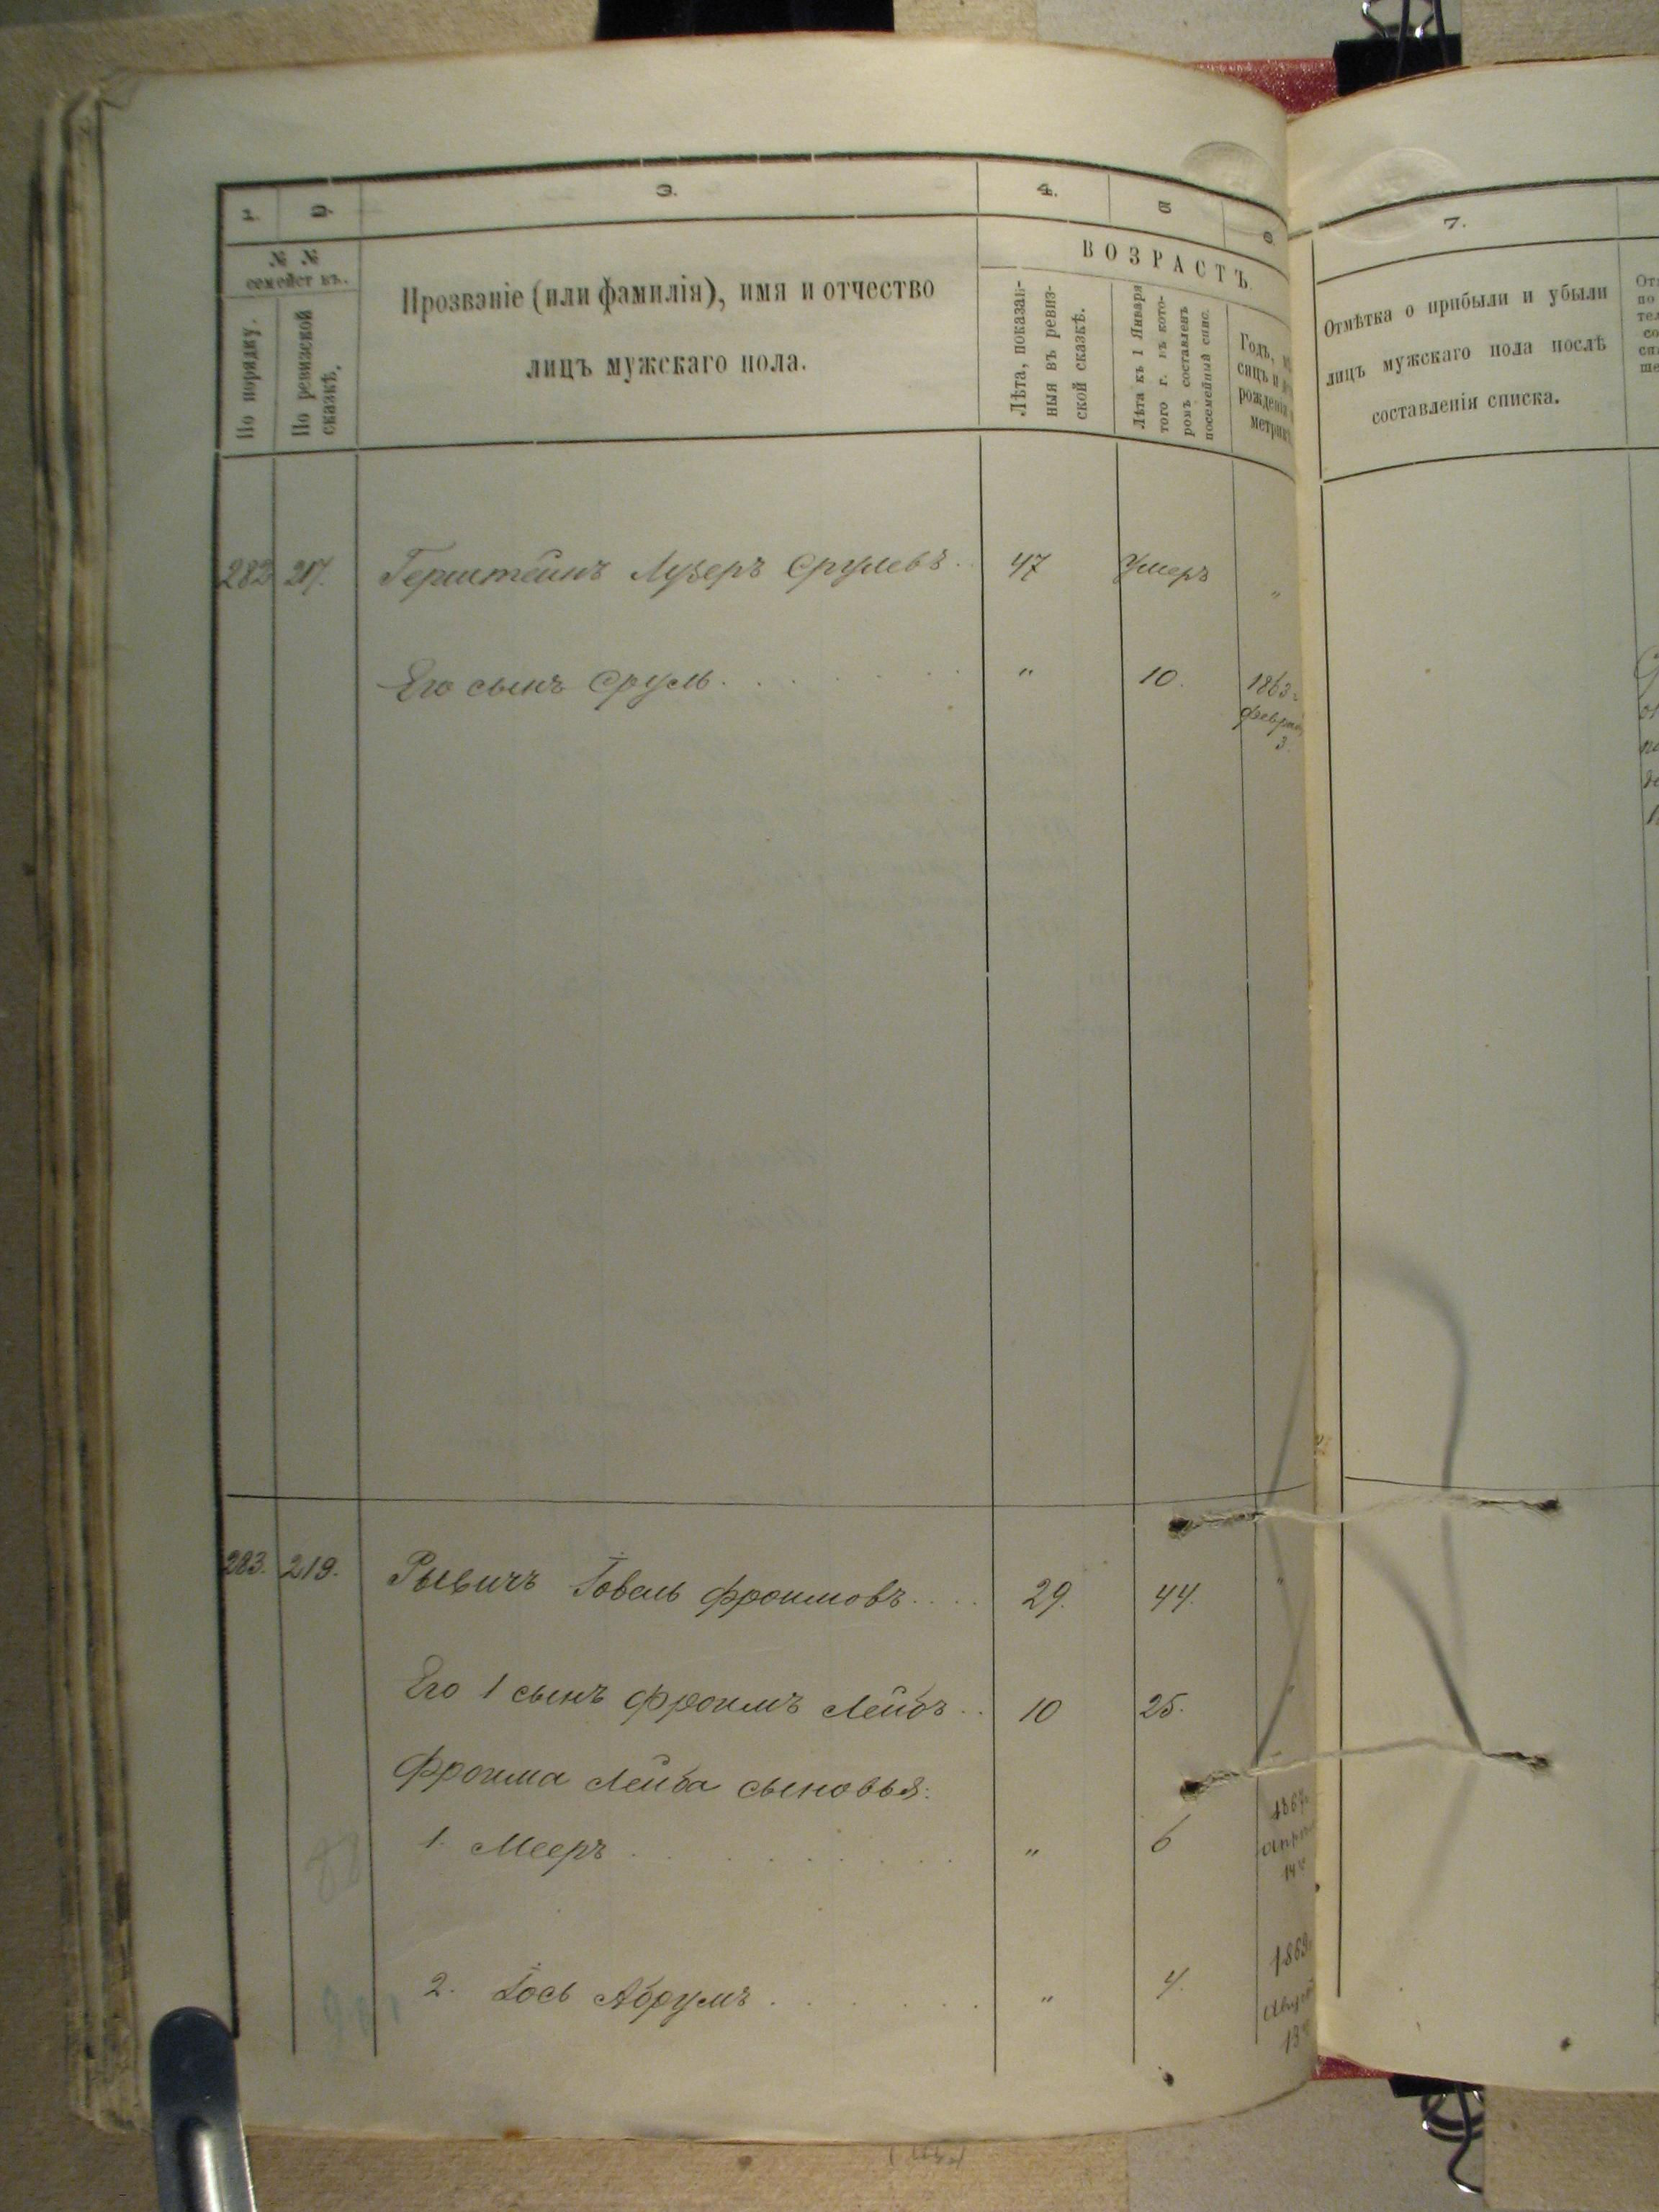 1. 2. 3. 4. 5 6. 7.
№ № семействъ.
По порядку.
По ревизской сказкѣ.
Прозваніе (или фамилія), имя и отчество
лицъ мужскаго пола.
ВОЗРАСТЪ.
Лѣта, показан-
ныя въ ревиз-
ской сказкѣ.
Лѣта къ 1 Января
того г. въ кото-
ромъ составленъ
посемейный спис.
Годъ, мѣ
сяцъ и
рожденія
метрик
Отмѣтка о прибыли и убыли
лицъ мужскаго пола послѣ
составленія списка.
282 217. Герштейнъ Лузеръ Срулевъ.. 47 Умеръ "
Его сынъ Сруль. " 10. 1863 г.
февраля
3.
283. 219. Рывичъ Іовель Фроимовъ.... 29. 44. "
Его 1 сынъ Фроимъ Лейбъ.. 10 25. "
Фроима Лейба сыновья:
1. Мееръ " 6 1867 г.
Апрѣл
14го
2. Іось Абрумъ " 4. 1869 г.
Август
13го